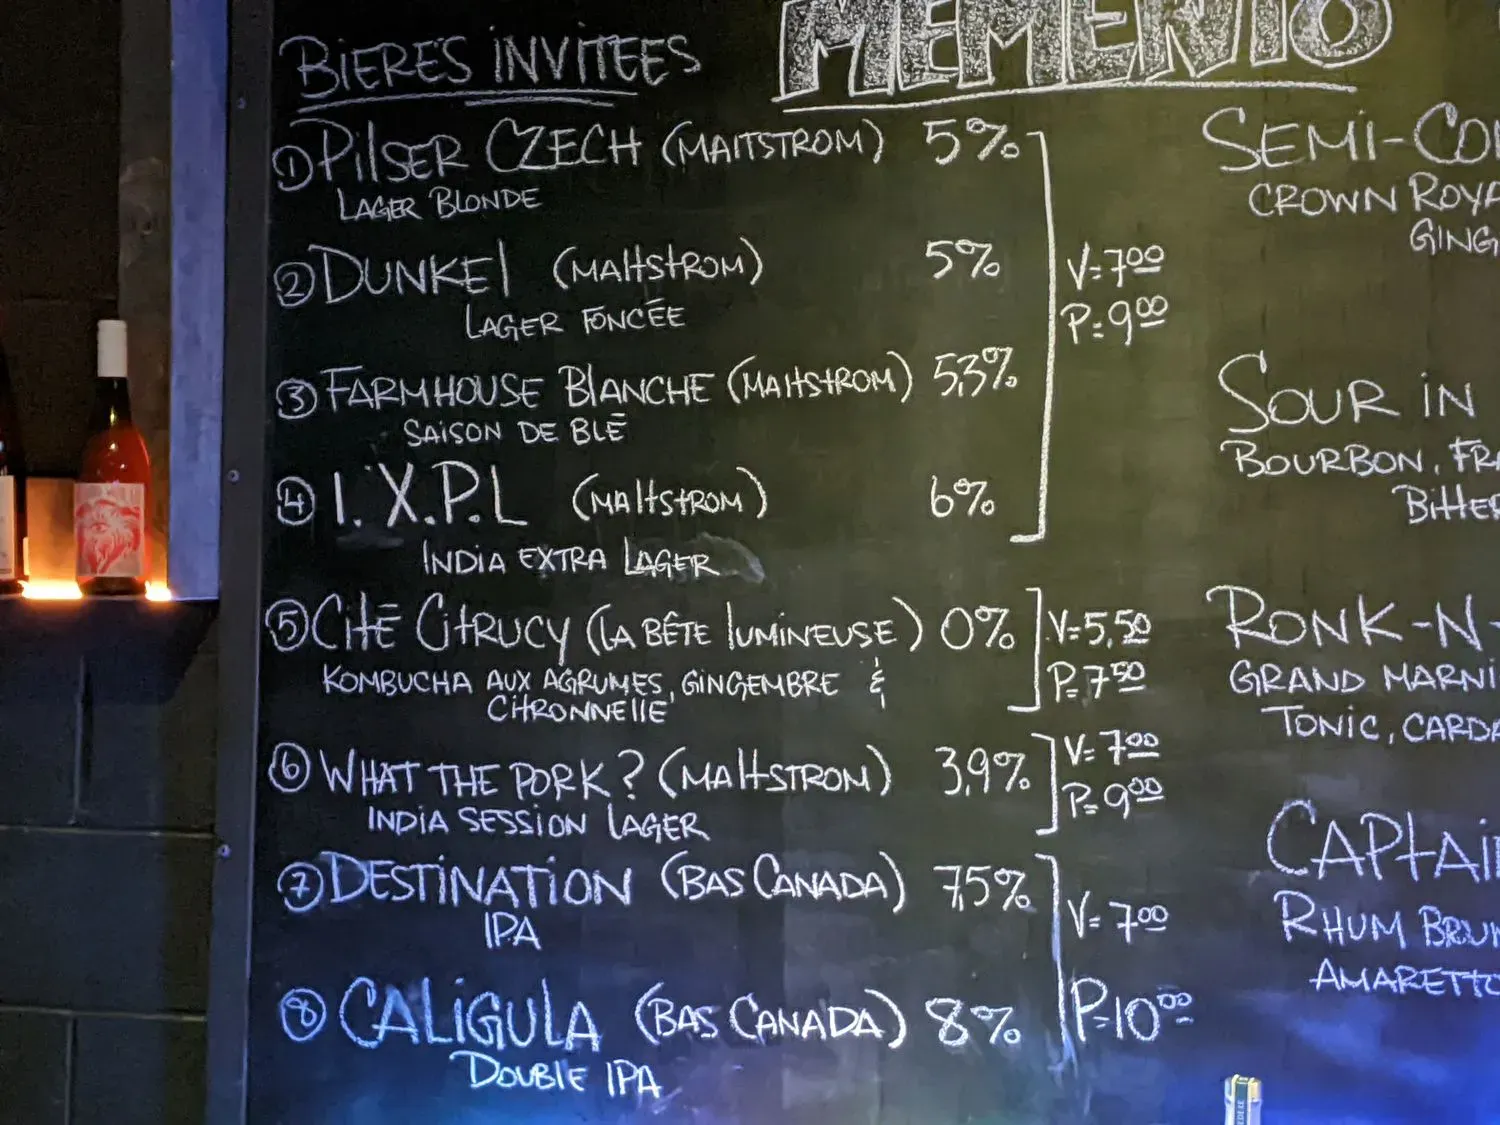 MEMENTO
BIERES INVITEES
① PILSER CZECH (MALTSTROM) 5%
LAGER BLONDE
② DUNKEL (MALTSTROM) 5%
LAGER FONCÉE
V=7.00
P=9.00
③ FARMHOUSE BLANCHE (MALTSTROM) 5,3%
SAISON DE BLÉ
④ I.X.P.L (MALTSTROM) 6%
INDIA EXTRA LAGER
⑤ CITÉ CITRUCY (LA BÊTE LUMINEUSE) 0%
KOMBUCHA AUX AGRUMES, GINGEMBRE &
CITRONNELLE
V=5,50
P=7.50
⑥ WHAT THE PORK? (MALTSTROM) 3,9%
INDIA SESSION LAGER
V=7.00
P=9.00
⑦ DESTINATION (BAS CANADA) 7,5%
IPA
V=7.00
⑧ CALIGULA (BAS CANADA) 8%
DOUBLE IPA
P=10.00
SEMI-CO
CROWN ROYA
GING
SOUR IN
BOURBON, FRA
BITTER
RONK-N-
GRAND MARNI
TONIC, CARDA
CAPTAI
RHUM BRUN
AMARETTO